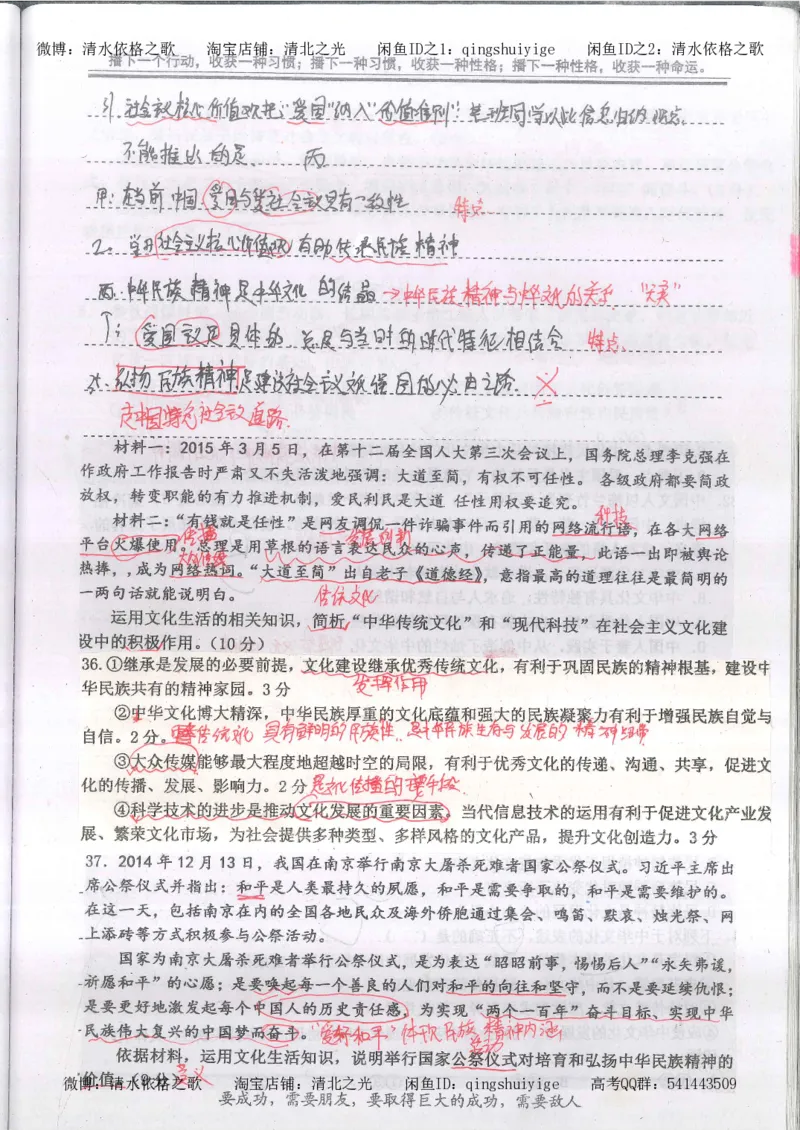 微博：清水依格之歌 淘宝店铺：清北之光 闲鱼ID之1：qingshuiyige 闲鱼ID之2：清水依格之歌
播下一个行动，收获一种习惯；播下一种习惯，收获一种性格；播下一种性格，收获一种命运。
引.社会主义核心价值观把"爱国"纳入"价值准则".某班同学以此信息归纳观点.
不能推出的是. 丙
甲：在当前中国爱国与爱社会主义具有一致性 特点
乙：社会主义核心价值观有助传承民族精神
丙：中华民族精神是中华文化的结晶→中华民族精神与中华文化的关系 "关系"
丁：爱国主义是具体的 总是与当时的时代特征相结合 特点
戊：弘扬民族精神是建设社会主义文化强国的必由之路 ×
走中国特色社会主义道路.
材料一：2015年3月5日，在第十二届全国人大第三次会议上，国务院总理李克强在
作政府工作报告时严肃又不失活泼地强调：大道至简，有权不可任性。 各级政府都要简政
放权，转变职能的有力推进机制，爱民利民是大道 任性用权要追究。
材料二："有钱就是任性"是网友调侃一件诈骗事件而引用的网络流行语，在各大网络
科技
平台火爆使用，总理是用草根的语言表达民众的心声，传递了正能量，此语一出即被舆论
传播
大众传媒
热捧，，成为网络热词。"大道至简"出自老子《道德经》，意指最高的道理往往是最简明的
一两句话就能说明白。 传统文化
运用文化生活的相关知识，简析"中华传统文化"和"现代科技"在社会主义文化建
设中的积极作用。（10分）
36.①继承是发展的必要前提，文化建设继承优秀传统文化，有利于巩固民族的精神根基，建设中
华民族共有的精神家园。3分 发挥作用
②中华文化博大精深，中华民族厚重的文化底蕴和强大的民族凝聚力有利于增强民族自觉与
自信。2分。传统文化 具有鲜明的民族性.是中华民族生存与发展的精神纽带
③大众传媒能够最大程度地超越时空的局限，有利于优秀文化的传递、沟通、共享，促进文
化的传播、发展、影响力。2分 是文化传播的主要手段
④科学技术的进步是推动文化发展的重要因素，当代信息技术的运用有利于促进文化产业发
展、繁荣文化市场，为社会提供多种类型、多样风格的文化产品，提升文化创造力。3分
37．2014年12月13日，我国在南京举行南京大屠杀死难者国家公祭仪式。习近平主席出
席公祭仪式并指出：和平是人类最持久的夙愿，和平是需要争取的，和平是需要维护的。
在这一天，包括南京在内的全国各地民众及海外侨胞通过集会、鸣笛、默哀、烛光祭、网
上添砖等方式积极参与公祭活动。
国家为南京大屠杀死难者举行公祭仪式,是为表达"昭昭前事，惕惕后人""永矢弗谖，
祈愿和平"的心愿；是要唤起每一个善良的人们对和平的向往和坚守，而不是要延续仇恨；
是要更好地激发起每个中国人的历史责任感，为实现"两个一百年"奋斗目标、实现中华
民族伟大复兴的中国梦而奋斗。"爱好和平"体现民族精神内涵
依据材料，运用文化生活知识，说明举行国家公祭仪式对培育和弘扬中华民族精神的
活动
价值。（9分） 意义
微博：清水依格之歌 淘宝店铺：清北之光 闲鱼ID：qingshuiyige 高考QQ群：541443509
要成功，需要朋友，要取得巨大的成功，需要敌人